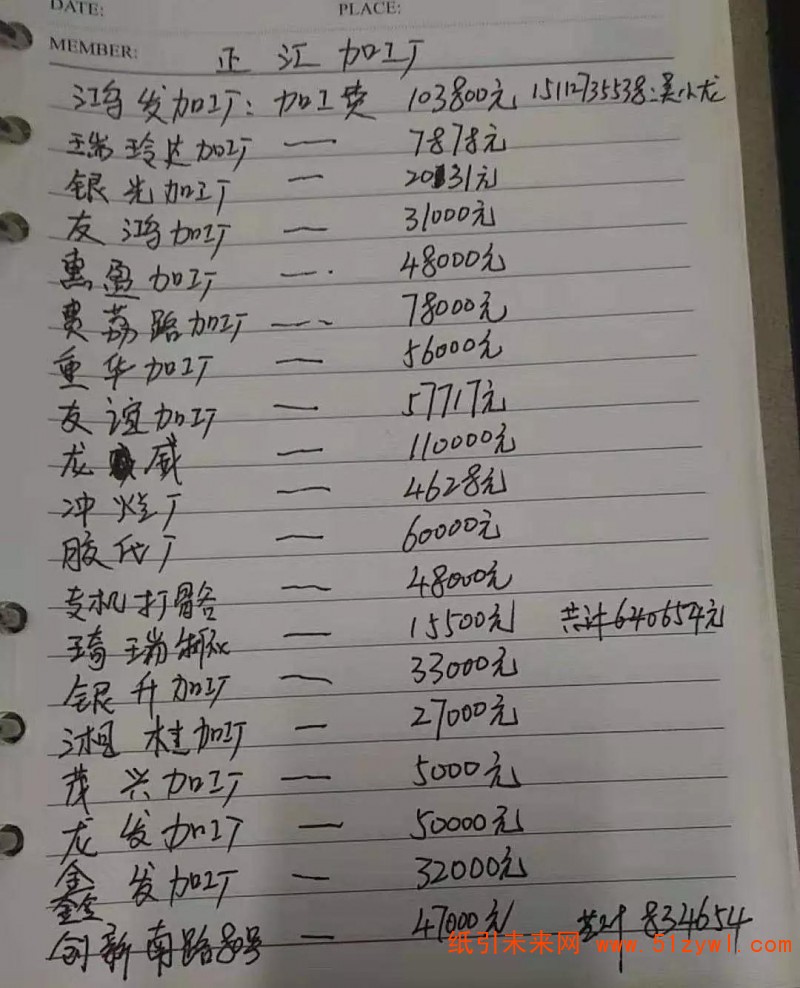 DATE: PLACE:
MEMBER: 正江加工厂
鸿发加工厂：加工费 103800元 15112735538：吴小龙
瑞玲达加工厂 — 7878元
银光加工厂 — 20131元
友鸿加工厂 — 31000元
惠盈加工厂 — 48000元
费荔路加工厂 — 78000元
重华加工厂 — 56000元
友谊加工厂 — 57717元
龙威 — 110000元
冲烧厂 — 4628元
胶代厂 — 60000元
专机打骨各 — 48000元
琦瑞制衣 — 15500元 共计640654元
银升加工厂 — 33000元
湘桂加工厂 — 27000元
茂兴加工厂 — 5000元
龙发加工厂 — 50000元
鑫发加工厂 — 32000元
创新南路80号 47000元 共计 834654
纸引未来网 www.51zywl.com